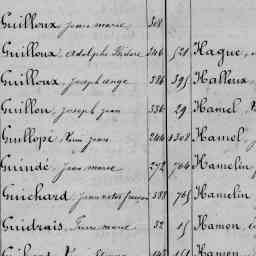 Guilloux, Jean marie 308
Guilloux, Adolphe Isidore 346 521 Hague,
Guilloux, Joseph ange 386 395 Halleux
Guillou, Joseph jean 336 29 Hamel
Guillopé, jean 246 1308 Hamel,
Guindé, Jean marie 272 764 Hamelin
Guichard, Jean victor françois 388 765 Hamelin
Guidrais, Pierre marie 32 15 Hamon